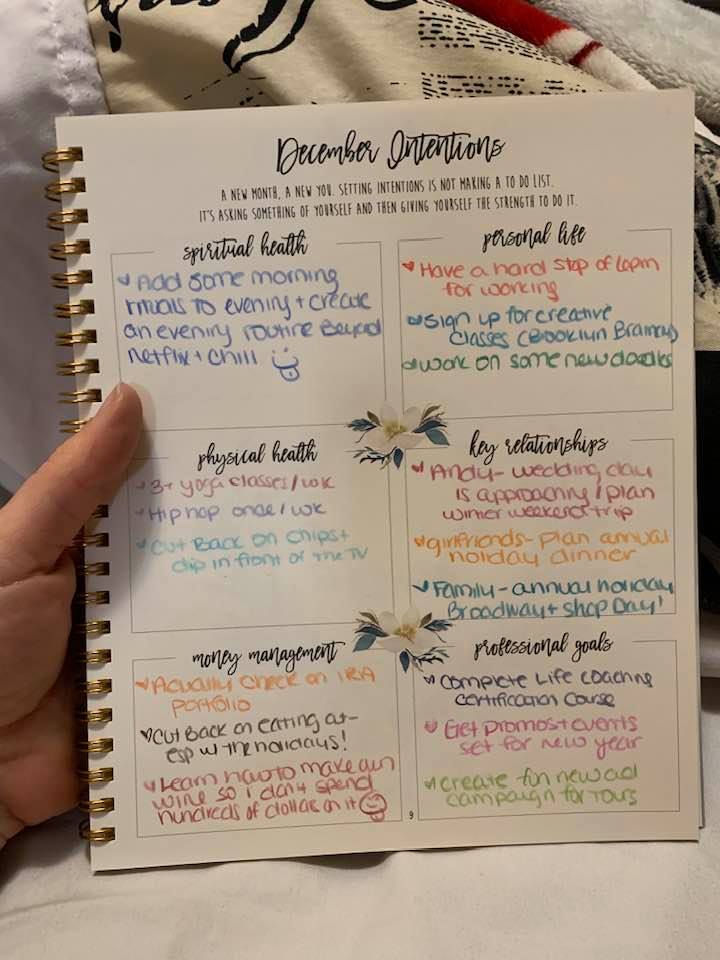 December Intentions
A NEW MONTH, A NEW YOU. SETTING INTENTIONS IS NOT MAKING A TO DO LIST.
IT'S ASKING SOMETHING OF YOURSELF AND THEN GIVING YOURSELF THE STRENGTH TO DO IT.
spiritual health
Add some morning
rituals to evening + create
an evening routine Beyond
netflix + chill
personal life
Have a hard stop of 6pm
for working
Sign up for creative
classes (Brooklyn Brainery)
work on some new doodles
physical health
3+ yoga classes/wk
Hip hop once/wk
Cut Back on chips +
dip in front of the TV
key relationships
Andy - wedding day
is approaching / plan
winter weekend trip
girlfriends - plan annual
holiday dinner
Family - annual holiday
Broadway + shop Day!
money management
Actually check on IRA
portfolio
Cut Back on eating out -
esp w the holidays!
Learn how to make own
wine so i don't spend
hundreds of dollars on it
professional goals
Complete Life coaching
certification course
Get promos + events
set for new year
create fun new ad
campaign for tours
9